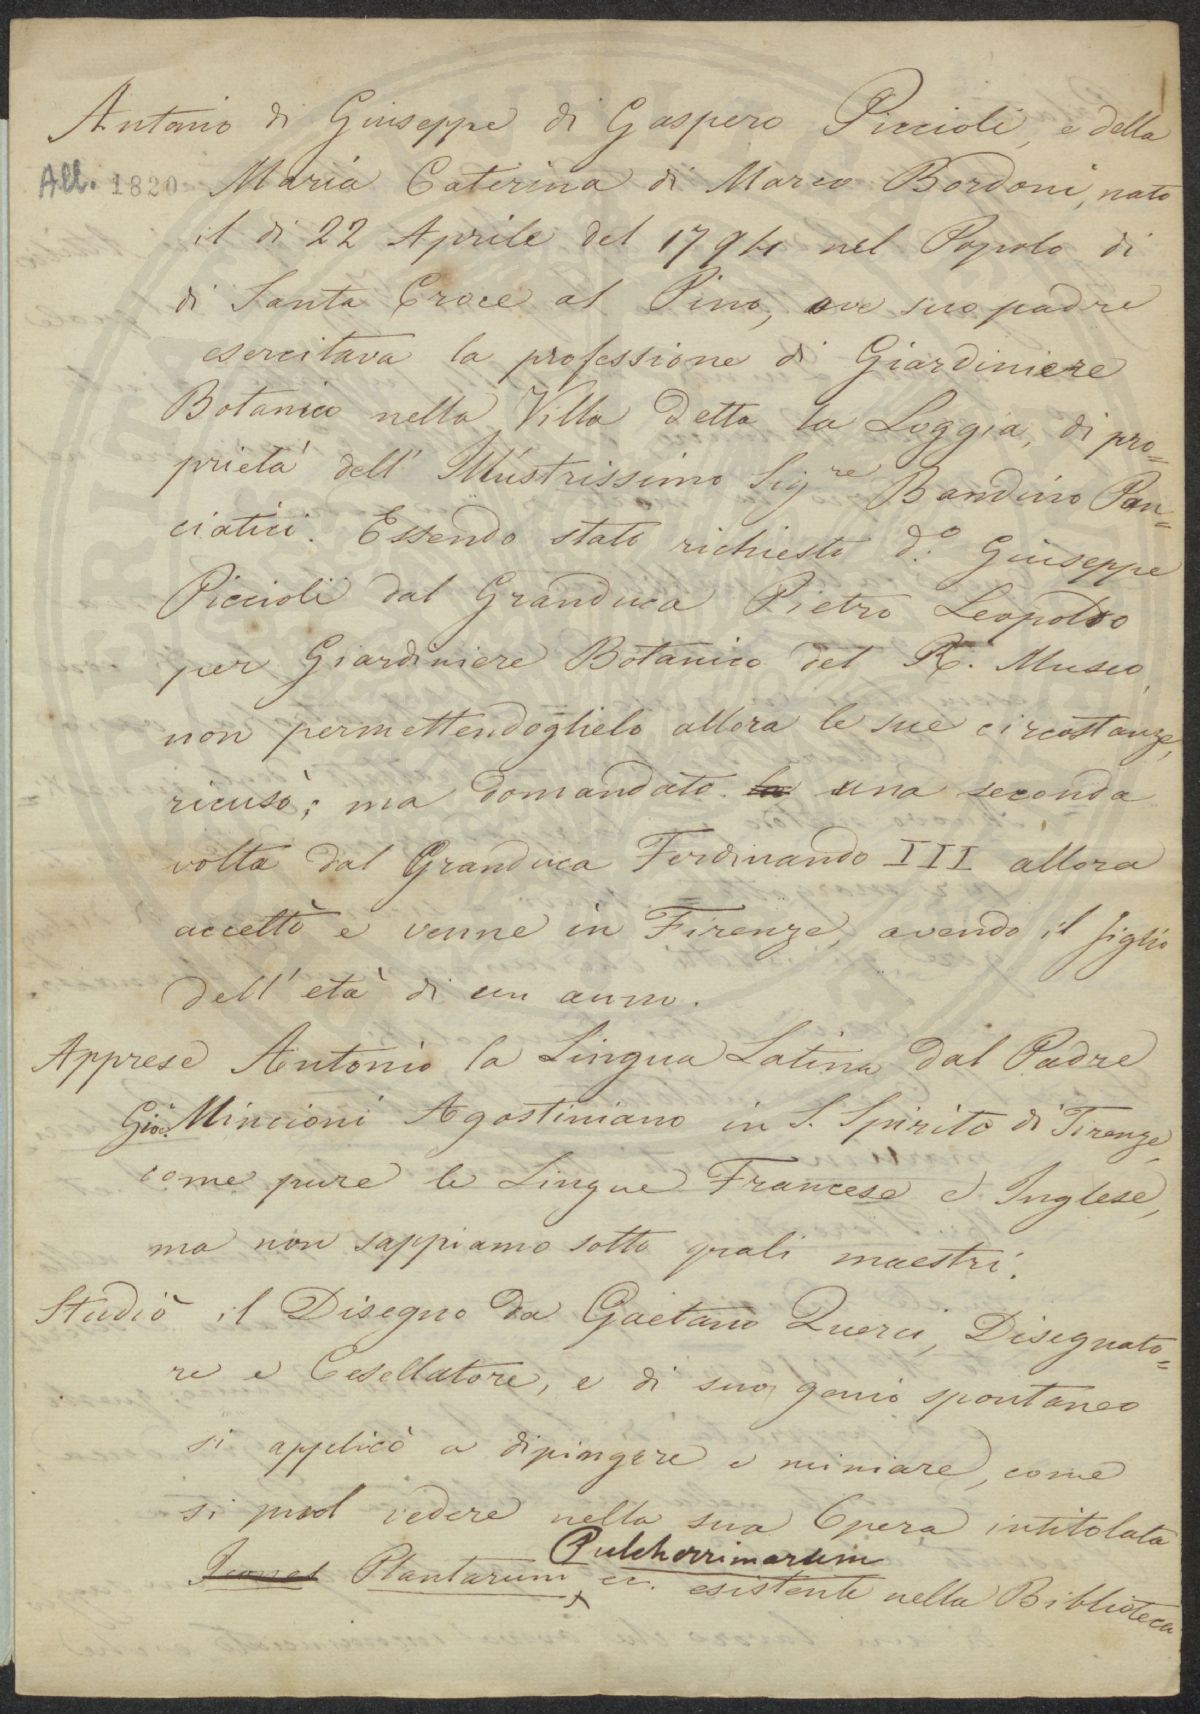 Antonio di Giuseppe di Gaspero Piccioli, e della
All. 1820
Maria Caterina di Marco Bordoni, nato
il di 22 Aprile del 1794 nel Popolo di
di Santa Croce al Pino, ove suo padre
esercitava la professione di Giardiniere
Botanico nella Villa detta la Loggia, di pro=
prietà dell' Illustrissimo Sig.re Bandino Pan=
ciatici. Essendo stato richiesto d.o Giuseppe
Piccioli dal Granduca Pietro Leopoldo
per Giardiniere Botanico del R. Museo,
non permettendoglielo allora le sue circostanze,
ricusò; ma domandato la una seconda
volta dal Granduca Ferdinando III allora
accettò e venne in Firenze, avendo il figlio
dell' età di un anno.
Apprese Antonio la Lingua Latina dal Padre
Gio: Mincioni Agostiniano in S. Spirito di Firenze,
come pure le Lingue Francese e Inglese,
ma non sappiamo sotto quali maestri.
Studiò il Disegno da Gaetano Querci, Disegnato=
re e Cesellatore, e di suo genio spontaneo
si applicò a dipingere e miniare, come
si puol vedere nella sua Opera intitolata
Pulcherrimarum
Icones Plantarum ec. esistente nella Biblioteca